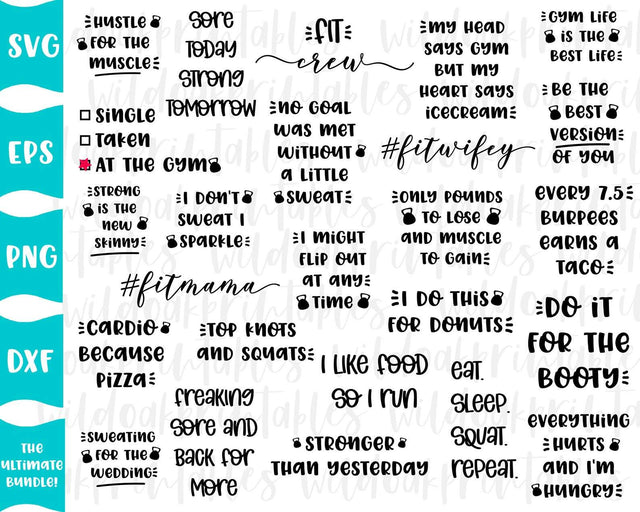 SVG
EPS
PNG
DXF
THE
ULTIMATE
BUNDLE!
HUSTLE
FOR THE
MUSCLE
SORE
TODAY
STRONG
TOMORROW
FIT
crew
MY HEAD
SAYS GYM
BUT MY
HEART SAYS
ICECREAM
GYM LIFE
IS THE
BEST LIFE
SINGLE
TAKEN
AT THE GYM
NO GOAL
WAS MET
WITHOUT
A LITTLE
SWEAT
#fitwifey
BE THE
BEST
VERSION
OF YOU
STRONG
IS THE
NEW
SKINNY
I DON'T
SWEAT I
SPARKLE
I MIGHT
FLIP OUT
AT ANY
TIME
ONLY POUNDS
TO LOSE
AND MUSCLE
TO GAIN
EVERY 7.5
BURPEES
EARNS A
TACO
#fitmama
I DO THIS
FOR DONUTS
DO IT
FOR THE
BOOTY
CARDIO
BECAUSE
PIZZA
TOP KNOTS
AND SQUATS
I LIKE FOOD
SO I RUN
EAT.
SLEEP.
SQUAT.
REPEAT.
FREAKING
SORE AND
BACK FOR
MORE
SWEATING
FOR THE
WEDDING
STRONGER
THAN YESTERDAY
EVERYTHING
HURTS
AND I'M
HUNGRY
wildoakprintables